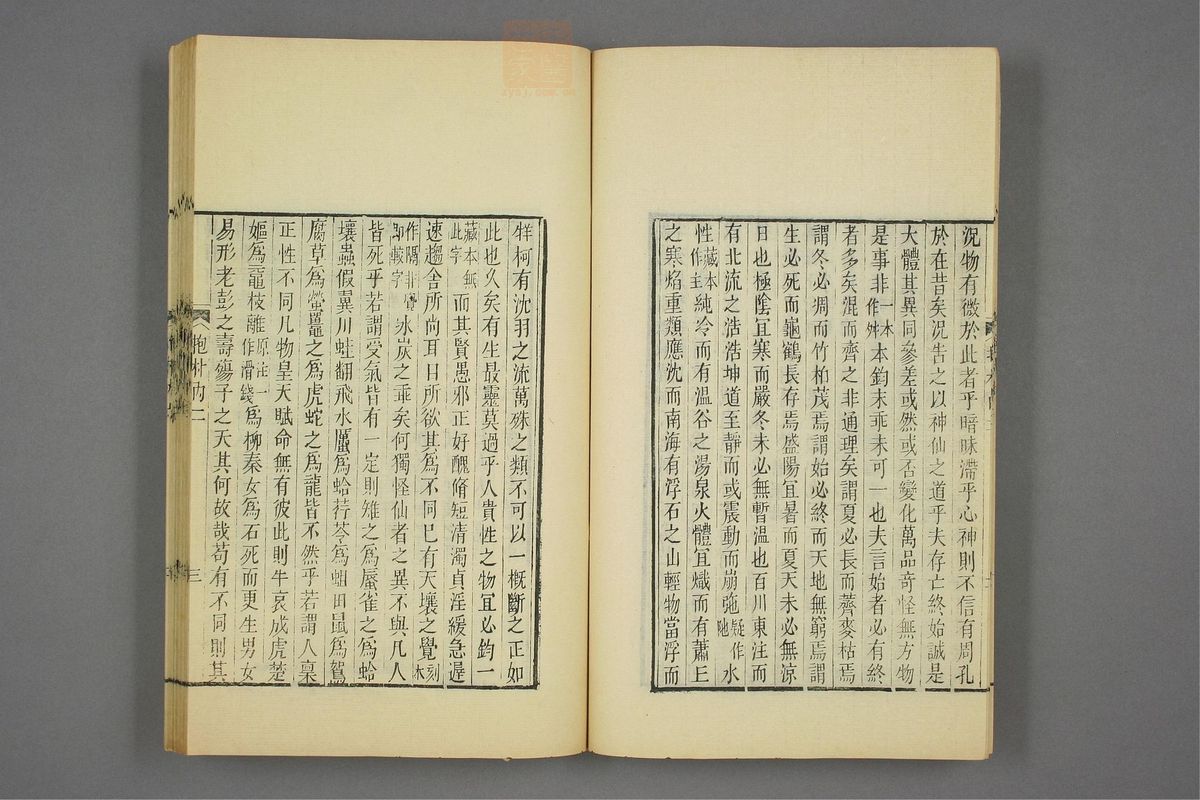 況物有微於此者乎暗昧滯乎心神則不信有周孔
於在昔矣況告之以神仙之道乎夫存亡終始誠是
大體其異同參差或然或否變化萬品奇怪無方物
是事非一本作舛本鈞末乖未可一也夫言始者必有終
者多矣混而齊之非通理矣謂夏必長而薺麥枯焉
謂冬必凋而竹柏茂焉謂始必終而天地無窮焉謂
生必死而龜鶴長存焉盛陽宜暑而夏天未必無涼
日也極陰宜寒而嚴冬未必無暫温也百川東注而
有北流之浩浩坤道至靜而或震動而崩弛疑作阤水
性藏本作主純冷而有温谷之湯泉火體宜熾而有蕭丘
之寒焰重類應沈而南海有浮石之山輕物當浮而
牂柯有沈羽之流萬殊之類不可以一概斷之正如
此也久矣有生最靈莫過乎人貴性之物宜必鈞一
藏本無此字而其賢愚邪正好醜脩短清濁貞淫緩急遲
速趨舍所尚耳目所欲其爲不同已有天壤之覺刻本
作隔非覺即較字冰炭之乖矣何獨怪仙者之異不與凡人
皆死乎若謂受氣皆有一定則雉之爲蜃雀之爲蛤
壤蟲假翼川蛙翻飛水蠆爲蛤荇苓爲蛆田鼠爲鴽
腐草爲螢鼉之爲虎蛇之爲龍皆不然乎若謂人稟
正性不同凡物皇天賦命無有彼此則牛哀成虎楚
嫗爲黿枝離原注一作滑錢爲柳秦女爲石死而更生男女
易形老彭之壽殤子之夭其何故哉苟有不同則其
抱朴内二
三